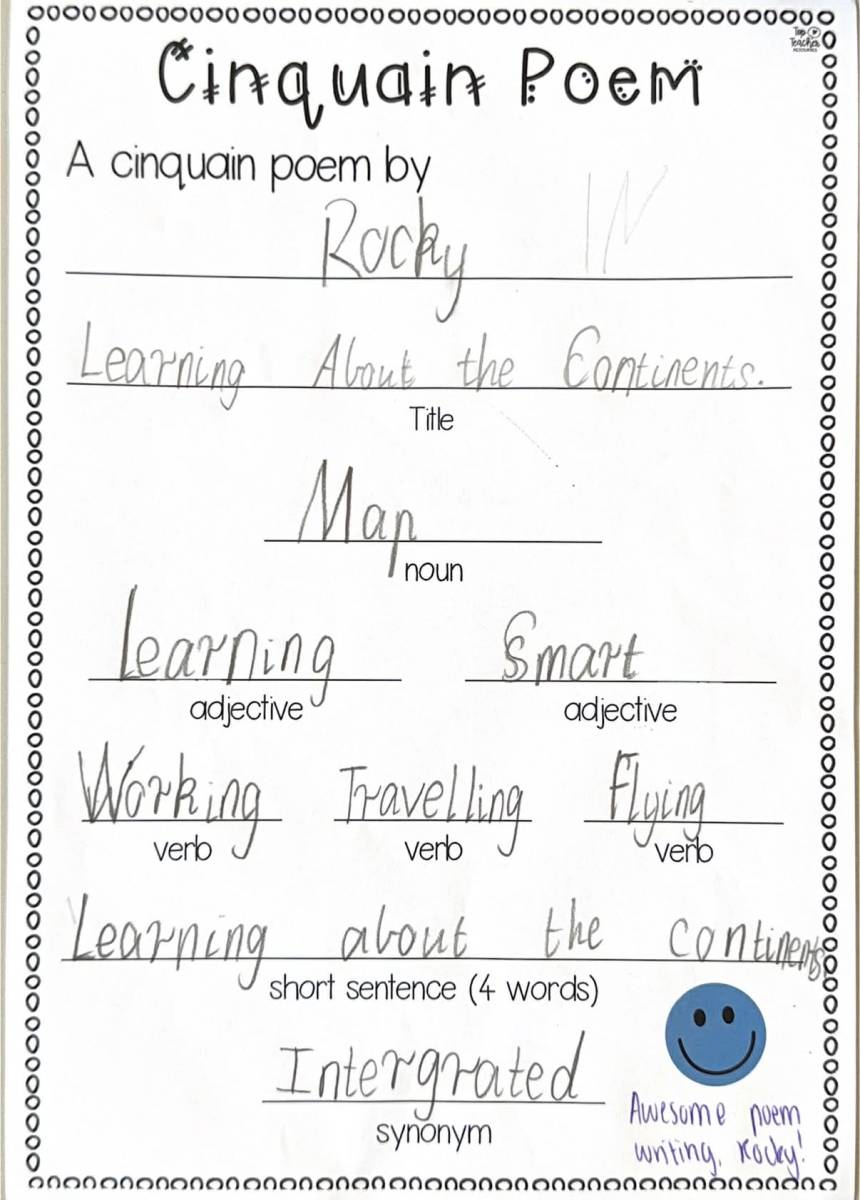 Top Teacher
Cinquain Poem
A cinquain poem by
Rocky IN
Learning About the Continents.
Title
Map
noun
Learning Smart
adjective adjective
Working Travelling Flying
verb verb verb
Learning about the continents
short sentence (4 words)
Intergrated
synonym
Awesome poem
writing, Rocky!